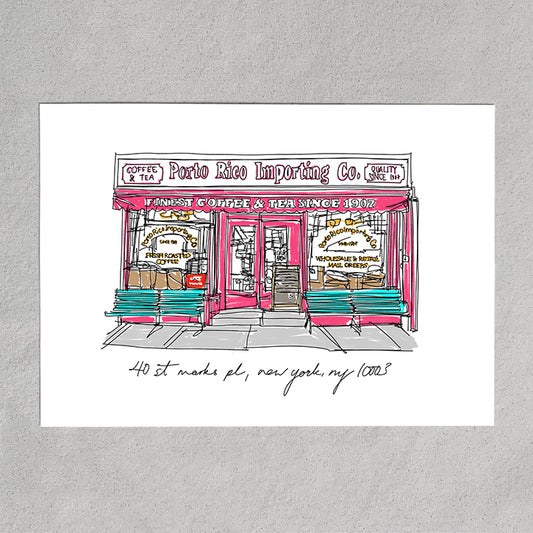 COFFEE & TEA
Porto Rico Importing Co.
QUALITY SINCE 1907
FINEST COFFEE & TEA SINCE 1907
Porto Rico Importing Co.
SINCE 1907
FRESH ROASTED
COFFEE
Porto Rico Importing Co.
SINCE 1907
WHOLESALE & RETAIL
MAIL ORDERS
40 st marks pl, new york, ny 10003